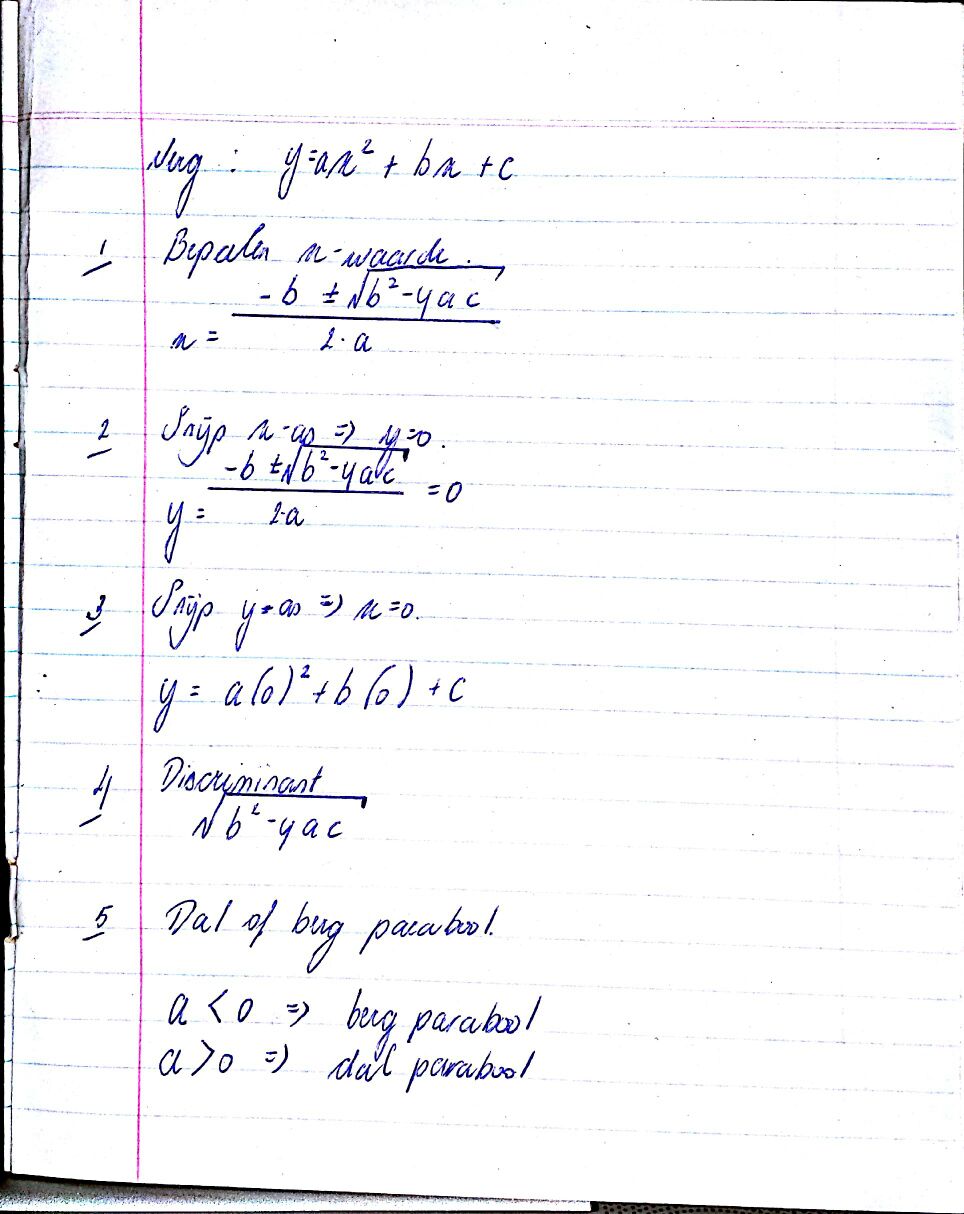 Verg : y=ax² + bx + c
1 Bepalen x-waarde.
x = (-b ± √(b²-4ac)) / (2·a)
2 Snijp x-as => y=0.
y = (-b ± √(b²-4ac)) / (2·a) = 0
3 Snijp y-as => x=0.
y = a(0)² + b(0) + c
4 Discriminant
√(b²-4ac)
5 Dal of berg parabool.
a < 0 => berg parabool
a > 0 => dal parabool